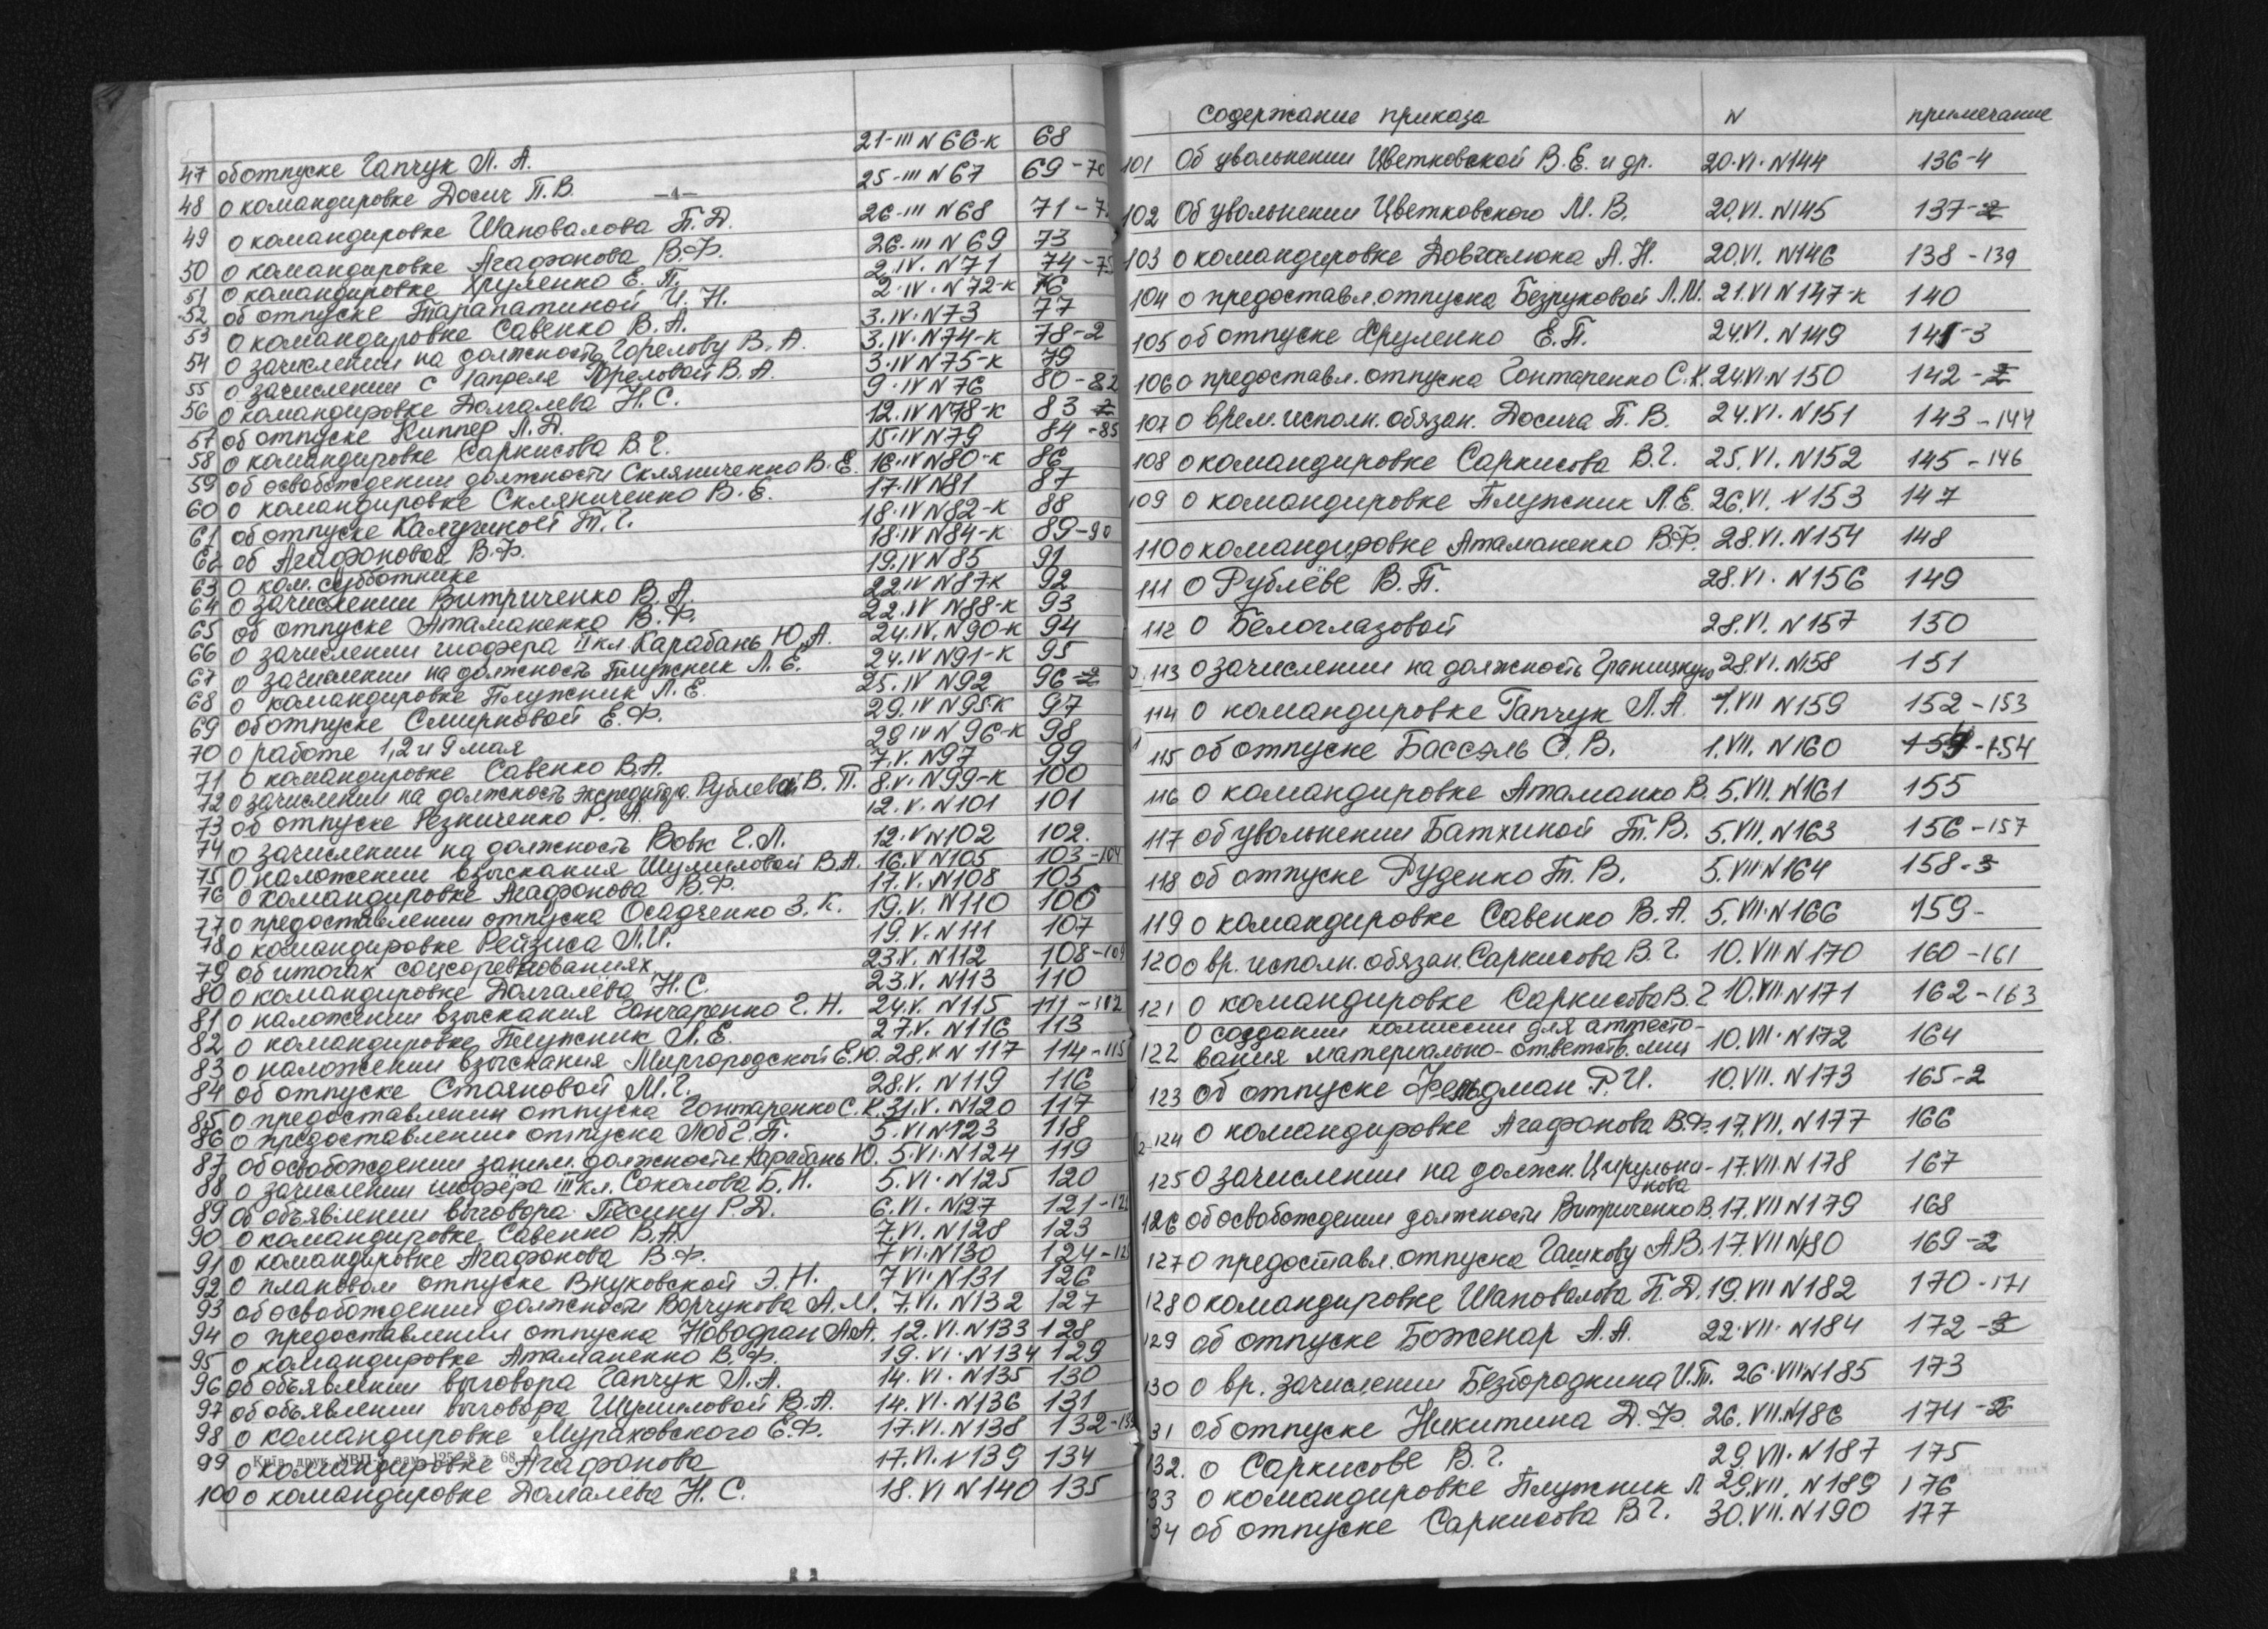 47 об отпуске Гапчук Л. А. 21-III N 66-к 68
48 о командировке Досич П. В. —„— 25-III N 67 69-70
49 о командировке Шаповалова П. Д. 26-III N 68 71-7
50 о командировке Агафонова В. Ф. 26.III N 69 73
51 о командировке Хруленко Е. П. 2.IV. N 71 74-75
52 об отпуске Тарапатиной И. Н. 2.IV. N 72-к 76
53 о командировке Савенко В. А. 3.IV. N 73 77
54 о зачислении на должность Горелову В. А. 3.IV. N 74-к 78-2
55 о зачислении с 1 апреля Гореловой В. А. 3.IV N 75-к 79
56 о командировке Долгалева Н. С. 9.IV N 76 80-82
57 об отпуске Киппер Л. Д. 12.IV N 78-к 83
58 о командировке Саркисова В. Г. 15.IV N 79 84-85
59 об освобождении должности Скляниченко В. Е. 16.IV N 80-к 86
60 о командировке Скляниченко В. Е. 17.IV N 81 87
61 об отпуске Калугиной Т. Г. 18.IV N 82-к 88
62 об Агафоновой В. Ф. 18.IV N 84-к 89-90
63 о ком. субботнике 19.IV N 85 91
64 о зачислении Витриченко В. А. 22.IV N 87-к 92
65 об отпуске Атаманенко В. Ф. 22.IV N 88-к 93
66 о зачислении шофера II кл. Карабань Ю. А. 24.IV. N 90-к 94
67 о зачислении на должность Плужник Л. Е. 24.IV N 91-к 95
68 о командировке Плужник Л. Е. 25.IV N 92 96-2
69 об отпуске Смирновой Е. Ф. 29.IV N 95-к 97
70 о работе 1, 2 и 9 мая 29 IV N 96-к 98
71 о командировке Савенко В. А. 7.V. N 97 99
72 о зачислении на должность экспедитора Рублевой В. П. 8.V. N 99-к 100
73 об отпуске Резниченко Р. А. 12.V. N 101 101
74 о зачислении на должность Вовк Г. Л. 12.V N 102 102.
75 о наложении взыскания Шумиловой В. А. 16.V N 105 103-104
76 о командировке Агафонова В. Ф. 17.V. N 108 105
77 о предоставлении отпуска Осадченко З. К. 19.V. N 110 106
78 о командировке Рейзиса Л. И. 19.V. N 111 107
79 об итогах соцсоревнованиях 23.V. N 112 108-109
80 о командировке Долгалева Н. С. 23.V. N 113 110
81 о наложении взыскания Гончаренко Г. Н. 24.V. N 115 111-112
82 о командировке Плужник Л. Е. 27.V. N 116 113
83 о наложении взыскания Миргородской Е. Ю. 28.V N 117 114-115
84 об отпуске Стояновой М. Г. 28.V. N 119 116
85 о предоставлении отпуска Гонтаренко С. К. 31.V. N 120 117
86 о предоставлении отпуска Лоб Г. П. 5.VI N 123 118
87 об освобождении заним. должности Карабань Ю. 5.VI. N 124 119
88 о зачислении шофёра III кл. Соколова Б. Н. 5.VI. N 125 120
89 об объявлении выговора Песину Р. Д. 6.VI. N 127 121-122
90 о командировке Савенко В. А. 7.VI. N 128 123
91 о командировке Агафонова В. Ф. 7 VI. N 130 124-125
92 о плановом отпуске Внуковской Э. Н. 7 VI. N 131 126
93 об освобождении должности Ворчукова А. М. 7.VI. N 132 127
94 о предоставлении отпуска Новодран А. А. 12.VI. N 133 128
95 о командировке Атаманенко В. Ф. 19.VI. N 134 129
96 об объявлении выговора Гапчук Л. А. 14.VI. N 135 130
97 об объявлении выговора Шумиловой В. А. 14.VI. N 136 131
98 о командировке Мураховского Е. Ф. 17.VI. N 138 132-133
99 о командировке Агафонова 17.VI. N 139 134
100 о командировке Долгалёва Н. С. 18.VI N 140 135
Содержание приказа N примечание
101 Об увольнении Цветковской В. Е. и др. 20.VI. N 144 136-4
102 Об увольнении Цветковского М. В. 20.VI. N 145 137-2
103 о командировке Довгалюка А. Н. 20.VI. N 146 138-139
104 о предоставл. отпуска Безруковой Л. М. 21.VI N 147-к 140
105 об отпуске Хруленко Е. П. 24.VI. N 149 141-3
106 о предоставл. отпуска Гонтаренко С. К. 24.VI. N 150 142-2
107 о врем. исполн. обязан. Досича П. В. 24.VI. N 151 143-144
108 о командировке Саркисова В. Г. 25.VI. N 152 145-146
109 о командировке Плужник Л. Е. 26.VI. N 153 147
110 о командировке Атаманенко В. Ф. 28.VI. N 154 148
111 о Рублёве В. П. 28.VI. N 156 149
112 о Белоглазовой 28.VI. N 157 150
113 о зачислении на должность Границкую 28.VI. N 158 151
114 о командировке Гапчук Л. А. 1.VII N 159 152-153
115 об отпуске Бассэль С. В. 1.VII. N 160 154-154
116 о командировке Атаманко В. 5.VII. N 161 155
117 об увольнении Батхиной Т. В. 5.VII. N 163 156-157
118 об отпуске Руденко Т. В. 5.VII. N 164 158-3
119 о командировке Савенко В. А. 5.VII. N 166 159-
120 о вр. исполн. обязан. Саркисова В. Г. 10.VII N 170 160-161
121 о командировке Саркисова В. Г. 10.VII. N 171 162-163
о создании комиссии для аттесто-
122 вания материально-ответств. лиц 10.VII. N 172 164
123 об отпуске Фельдман Р. И. 10.VII. N 173 165-2
124 о командировке Агафонова В. Ф. 17.VII. N 177 166
125 о зачислении на должн. Цирульни- 17.VII. N 178 167
кова
126 об освобождении должности Витриченко В. 17.VII N 179 168
127 о предоставл. отпуска Гашкову А. В. 17.VII N 180 169-2
128 о командировке Шаповалова П. Д. 19.VII N 182 170-171
129 об отпуске Боженар А. А. 22.VII. N 184 172-3
130 о вр. зачислении Безбородкина И. Т. 26.VII N 185 173
131 об отпуске Никитина Д. Ф. 26.VII. N 186 174-2
132. о Саркисове В. Г. 29.VII. N 187 175
133 о командировке Плужник Л 29.VII. N 189 176
134 об отпуске Саркисова В. Г. 30.VII. N 190 177